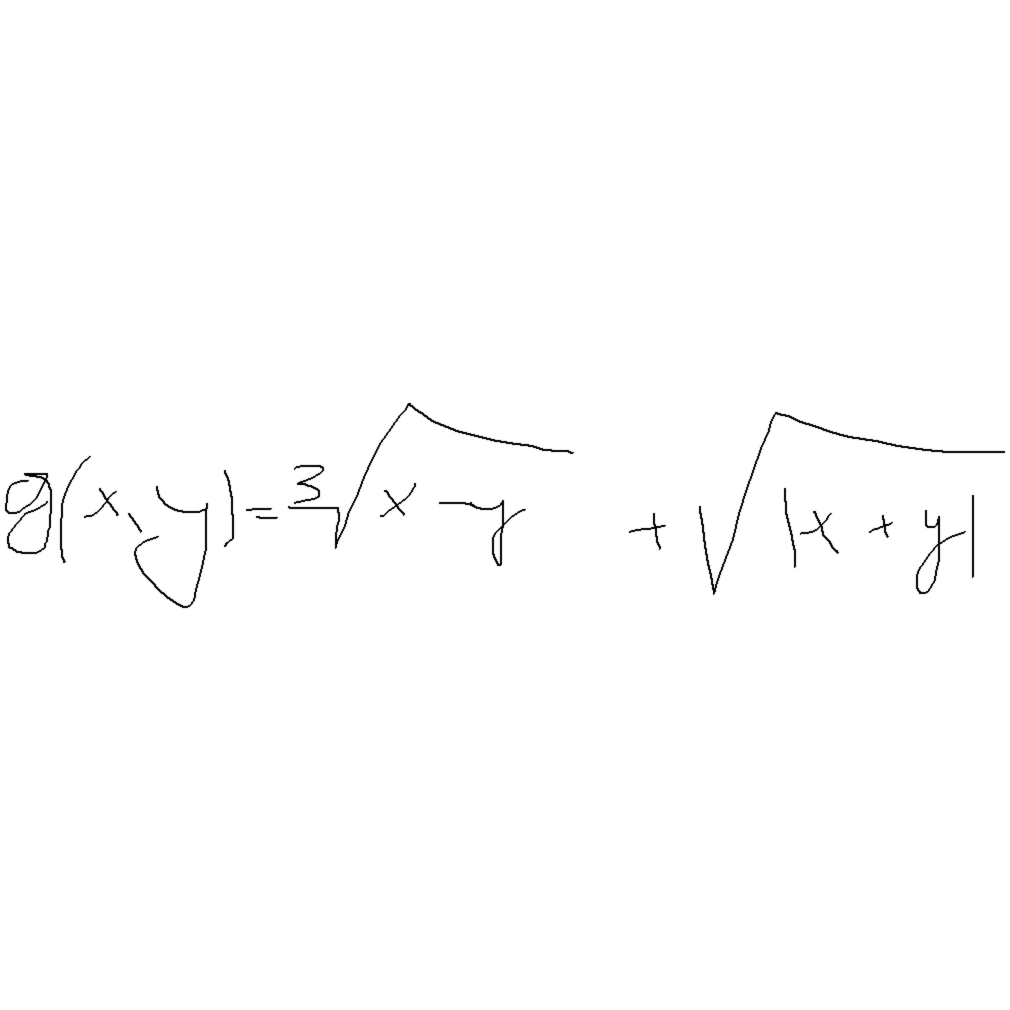 g(x,y)=∛(x-y) + √|x+y|